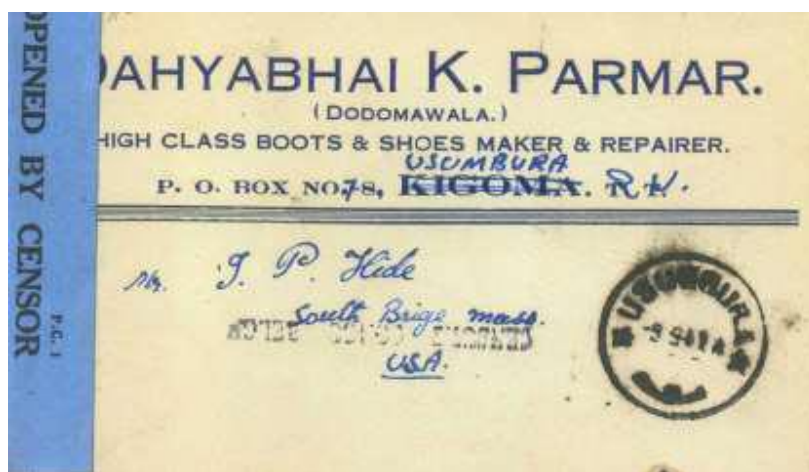 OPENED BY CENSOR
P.C. 1
DAHYABHAI K. PARMAR.
(DODOMAWALA.)
HIGH CLASS BOOTS & SHOES MAKER & REPAIRER.
USUMBURA
P. O. BOX NO. 78, KIGOMA.
Mr. J. P. Hide
South Brige mass.
CENSURE CONGO BELGE
USA.
USUMBURA